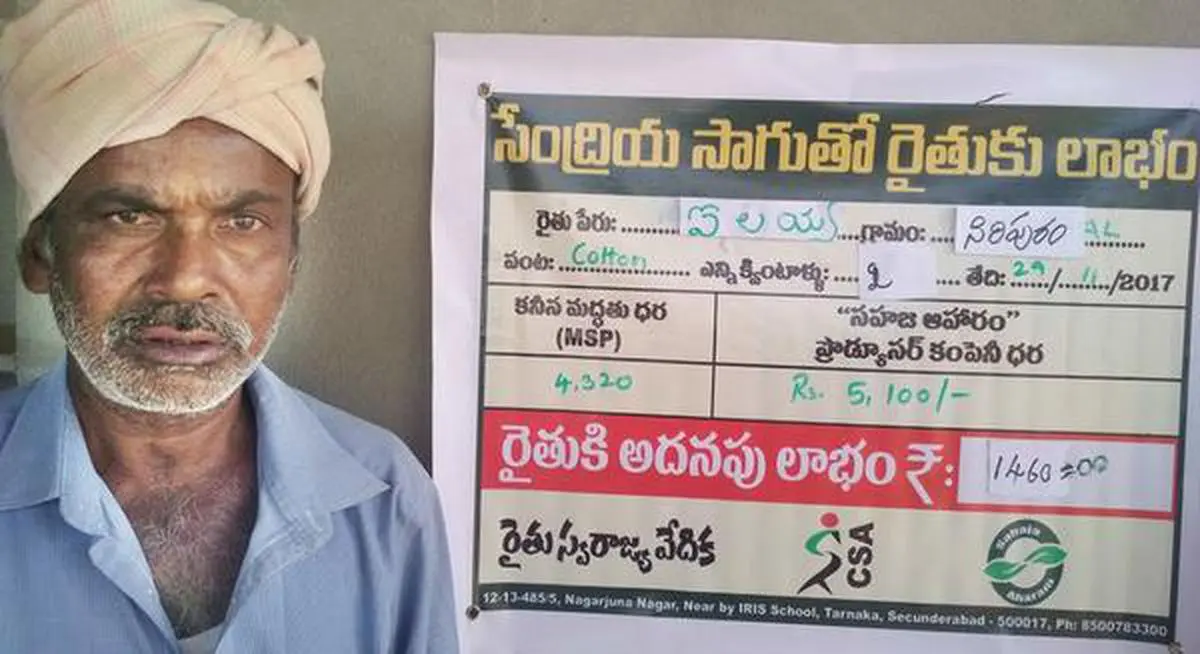 సేంద్రియ సాగుతో రైతుకు లాభం
రైతు పేరు: .......... ఐలయ్య ....గ్రామం: .... సిరిపురం
పంట: ... Cotton ............ ఎన్ని క్వింటాళ్ళు: .... 2 .... తేది: 29/11/2017
కనీస మద్ధతు ధర
(MSP)
“సహజ ఆహారం”
ప్రొడ్యూసర్ కంపెనీ ధర
4,320
Rs. 5,100/-
రైతుకి అదనపు లాభం ₹: 1460=00
రైతు స్వరాజ్య వేదిక
CSA
Sahaja
Aharam
12-13-485/5, Nagarjuna Nagar, Near by IRIS School, Tarnaka, Secunderabad - 500017, Ph: 8500783300